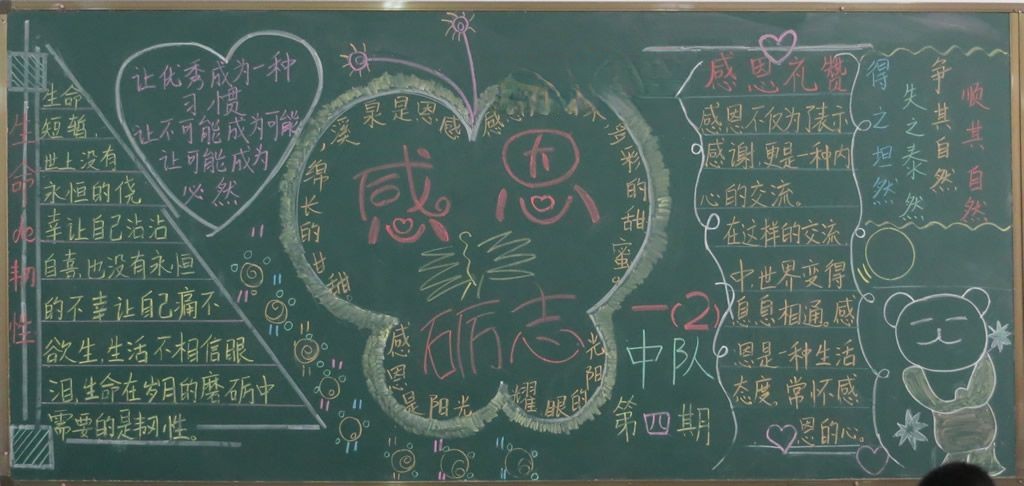 生命de韧性
生命
短暂,
世上没有
永恒的侥
幸让自己沾沾
自喜,也没有永恒
的不幸让自己痛不
欲生,生活不相信眼
泪,生命在岁月的磨砺中
需要的是韧性。
让优秀成为一种
习惯
让不可能成为可能
让可能成为
必然
溪泉是恩感
绵长的甘甜
多彩的甜蜜
感恩是阳光
耀眼的阳光
感恩
砺志
一(2)
中队
第四期
感恩礼赞
感恩不仅为了表示
感谢,更是一种内
心的交流。
在这样的交流
中世界变得
息息相通。感
恩是一种生活
态度,常怀感
恩的心。
得之坦然
失之泰然
争其自然
顺其自然